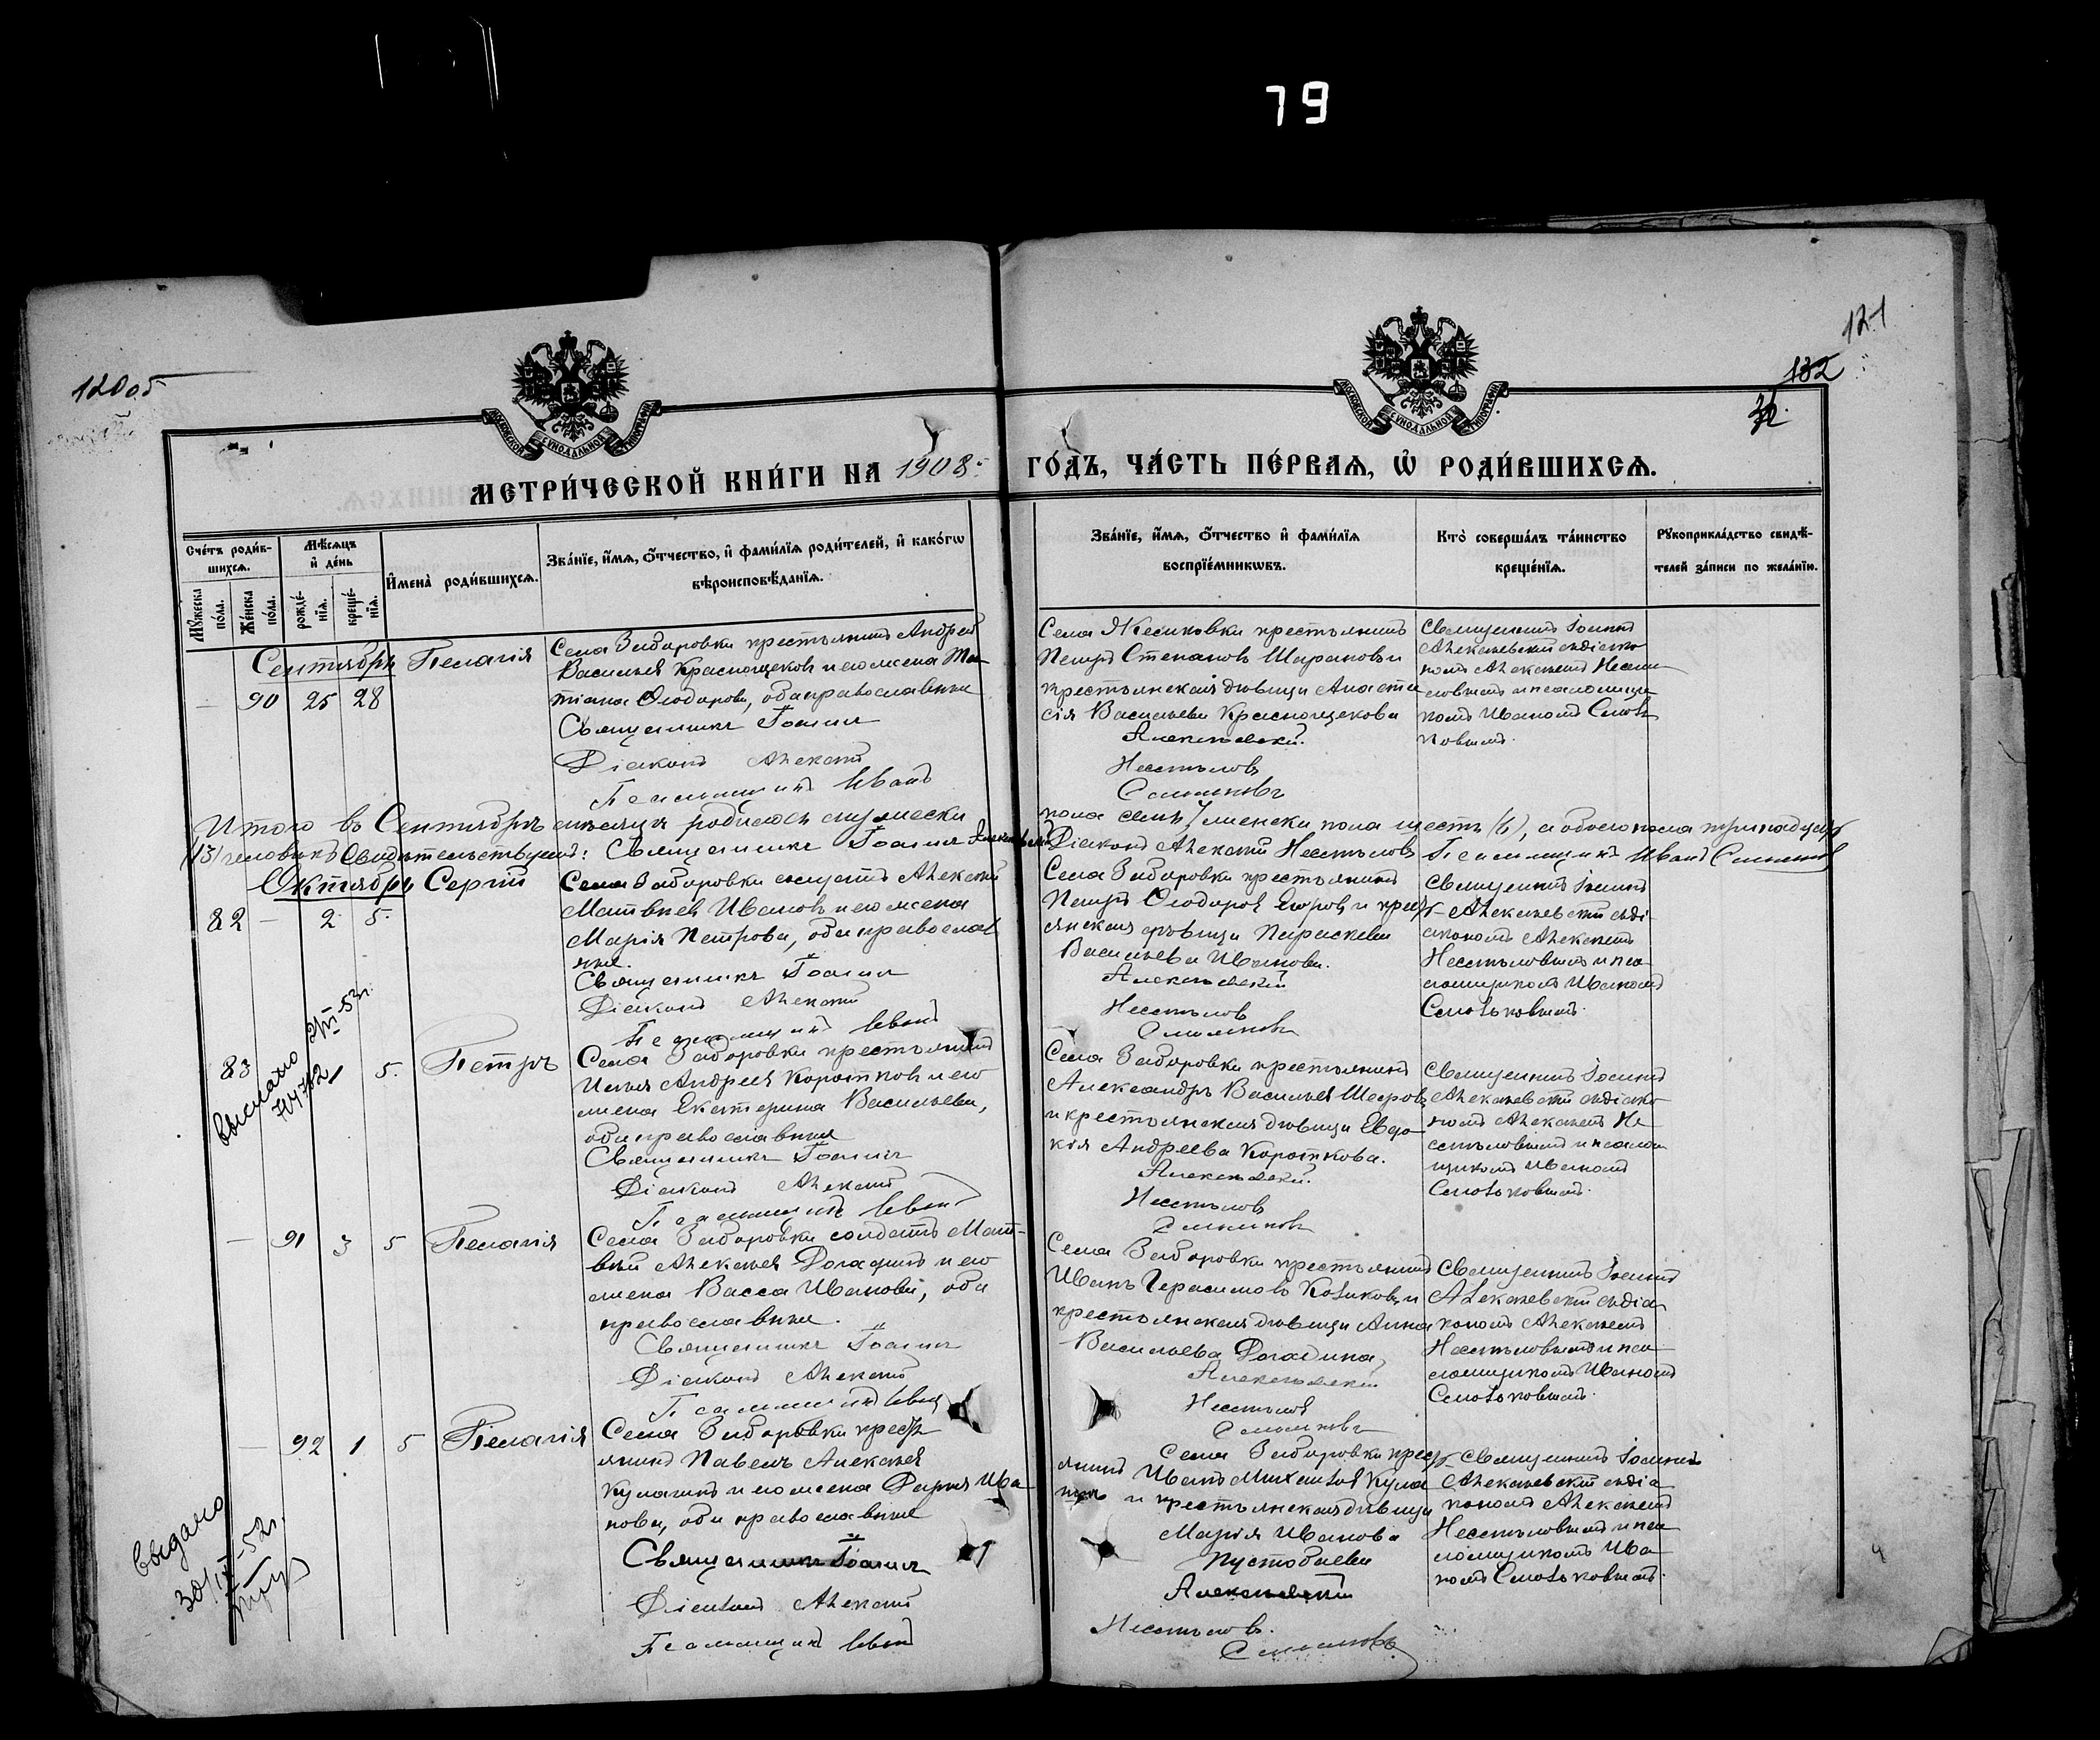 79
120об
121
132
МОСКОВСКОЙ СѴНОДАЛЬНОЙ ТИПОГРАФІИ
МОСКОВСКОЙ СѴНОДАЛЬНОЙ ТИПОГРАФІИ
МЕТРИ́ЧЕСКОЙ КНИ́ГИ НА 1908 ГО́ДЪ, ЧА́СТЬ ПЕ́РВАѦ, Ѡ҆ РОДИ́ВШИХСѦ.
Сче́тъ роди́в-
шихсѧ.
Мꙋ́жеска
по́ла.
Же́нска
по́ла.
Мѣ́сѧцъ
и҆ де́нь
рожде́-
нїѧ.
креще́-
нїѧ.
И҆мена̀ роди́вшихсѧ.
Зва́нїе, и҆́мѧ, ѻ҆́тчество, и҆ фами́лїѧ роди́телей, и҆ како́гѡ
вѣроисповѣ́данїѧ.
Зва́нїе, и҆́мѧ, ѻ҆́тчество и҆ фами́лїѧ
воспрїе́мникѡвъ.
Кто̀ соверша́лъ та́инство
креще́нїѧ.
Рꙋкоприкла́дство свидѣ́-
телей за́писи по жела́нїю.
Сентябрь
— 90 25 28
Пелагія
Села Заборовки крестьянинъ Андрей
Васильевъ Краснощековъ и его жена Та-
тіана Ѳеодорова, оба православные
Священникъ Іоаннъ
Діаконъ Алексѣй
Псаломщикъ Иванъ
Петръ Степановъ Шарановъ и
крестьянская дѣвица Анаста
сія Васильева Краснощекова
Алексѣевскій.
Несмѣловъ
Смѣльковъ
Священникъ Іоаннъ
Алексѣевскій съ діако
номъ Алексѣемъ Несмѣ
ловымъ и псаломщи
комъ Иваномъ
Итого въ Сентябрѣ мѣсяцѣ родилось мужеска пола семь 7 женска пола шесть (6), а обоего пола тринадцать
(13) человѣкъ Свидѣтельствуемъ: Священникъ Іоаннъ Алексѣевскій Діаконъ Алексѣй Несмѣловъ Псаломщикъ Иванъ
Октябрь
82 — 2 5.
Сергій
Села Заборовки солдатъ Алексѣй
Матвѣевъ Ивановъ и его жена
Марія Петрова, оба православ
ные.
Священникъ Іоаннъ
Діаконъ Алексѣй
Псаломщикъ Иванъ
Села Заборовки крестьянинъ
Петръ Ѳеодоровъ Егоровъ и крест-
янская дѣвица Параскева
Васильева Иванова.
Алексѣевскій
Несмѣловъ
Священникъ Іоаннъ
Алексѣевскій съ ді-
акономъ Алексѣемъ
Несмѣловымъ и пса-
ломщикомъ Иваномъ
83 5.
выслано
Петръ
Села Заборовки крестьянинъ
Илья Андреевъ Коротковъ и его
жена Екатерина Васильева,
оба православные
Священникъ Іоаннъ
Діаконъ Алексѣй
Псаломщикъ Иванъ
Села Заборовки крестьянинъ
Александръ Васильевъ
и крестьянская дѣвица Евдо-
кія Андреева Короткова.
Алексѣевскій.
Несмѣловъ
Священникъ Іоаннъ
Алексѣевскій съ діако-
номъ Алексѣемъ Не
смѣловымъ и псалом
щикомъ Иваномъ
— 91 3 5
Пелагія
Села Заборовки солдатъ Мат-
вѣй Алексѣевъ Догадинъ и его
жена Васса Иванова, оба
православные.
Священникъ Іоаннъ
Діаконъ Алексѣй
Псаломщикъ Иванъ
Села Заборовки крестьянинъ
Иванъ Герасимовъ и
крестьянская дѣвица Анна
Васильева Догадина,
Алексѣевскій
Несмѣловъ
Священникъ Іоаннъ
Алексѣевскій съ діа
кономъ Алексѣемъ
Несмѣловымъ и пса-
ломщикомъ Иваномъ
— 92 1 5
выдано
Пелагія
Села Заборовки кресть
янинъ Павелъ Алексѣевъ
Кулагинъ и его жена Дарья Ива
нова, оба православные
Священникъ Іоаннъ
Діаконъ Алексѣй
Псаломщикъ Иванъ
Села Заборовки крест-
янинъ Иванъ Михаиловъ Кула
гинъ и крестьянская дѣвица
Марія Иванова
Пустобаева
Алексѣевскій
Несмѣловъ.
Священникъ Іоаннъ
Алексѣевскій съ діа
кономъ Алексѣемъ
Несмѣловымъ и пса
ломщикомъ Ива
номъ